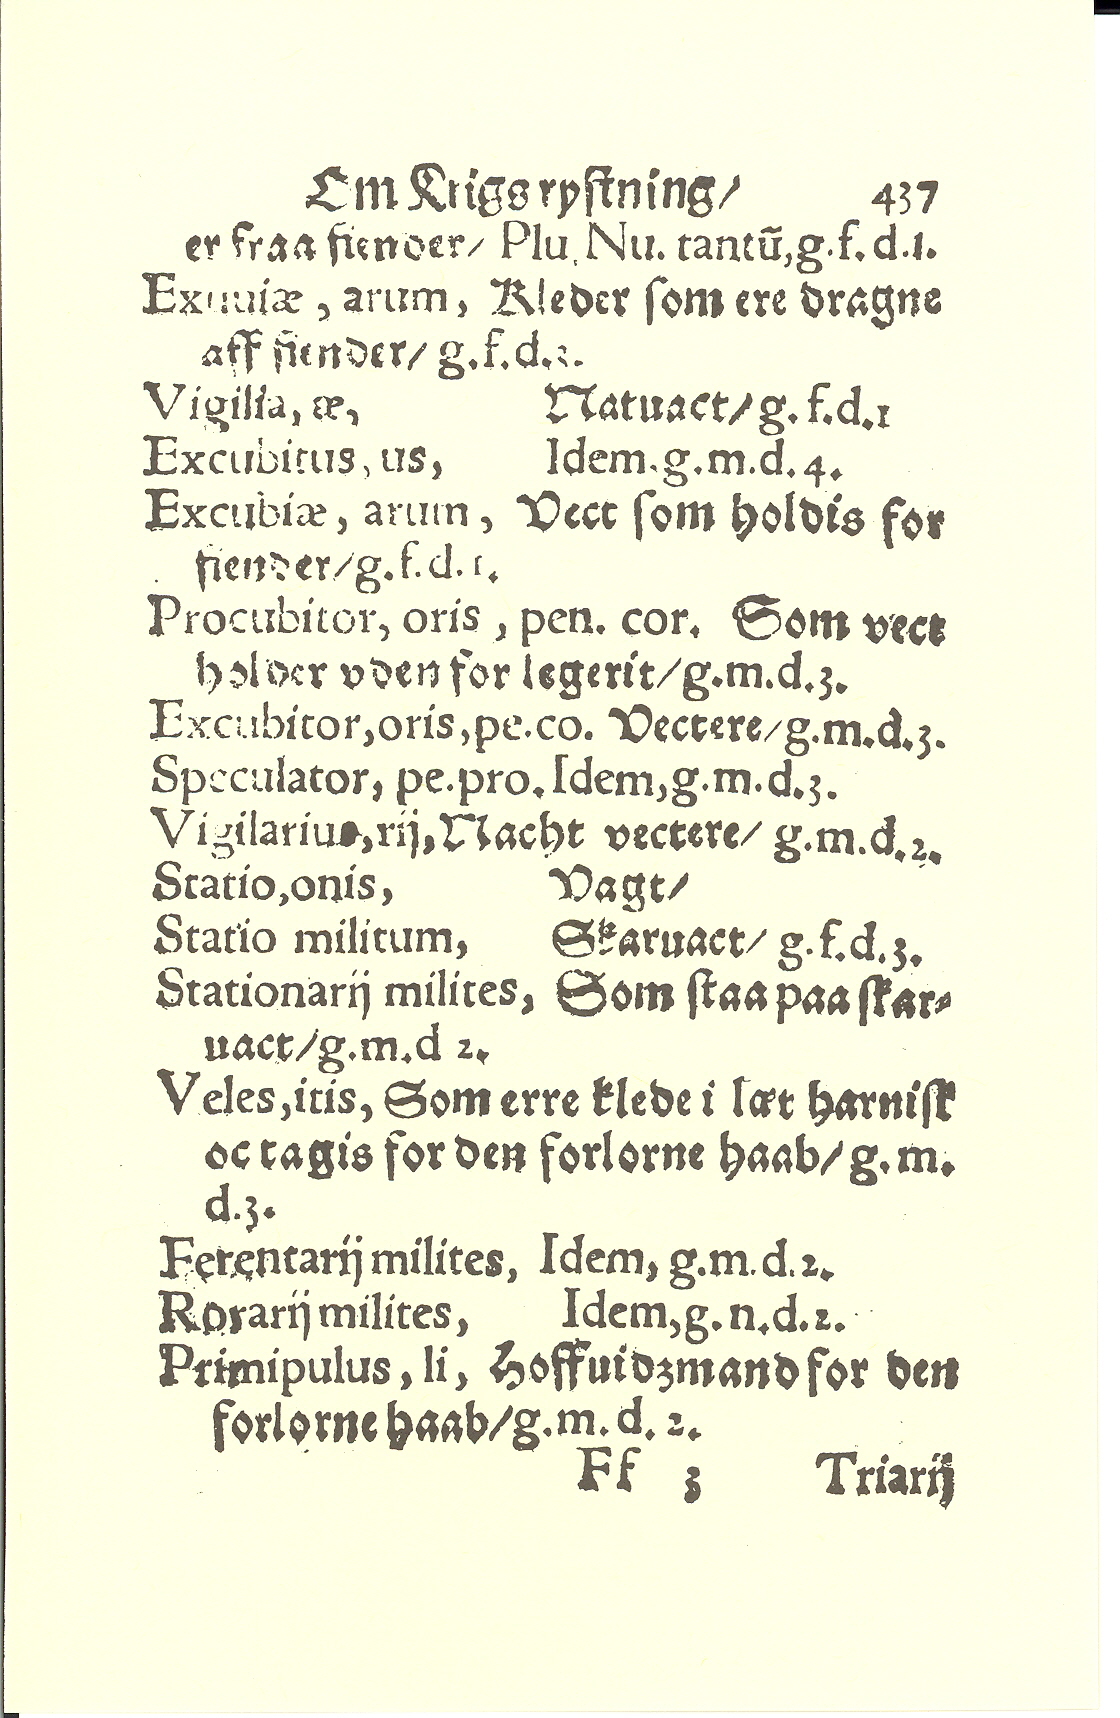 Om Krigsrystning/ 437
er fraa fiender/ Plu. Nu. tantũ,g.f.d.1.
Exuuiæ, arum, Kleder som ere dragne
aff fiender/ g.f.d.1.
Vigilia, æ, Natuact/g.f.d.1
Excubitus, us, Idem.g.m.d.4.
Excubiæ, arum, Vect som holdis for
fiender/g.f.d.1.
Procubitor, oris, pen. cor. Som vect
holder vden for legerit/g.m.d.3.
Excubitor,oris,pe.co. Vectere/g.m.d.3.
Speculator, pe.pro. Idem,g.m.d.3.
Vigilarius,rij,Nacht vectere/ g.m.d.2.
Statio,onis, Vagt/
Statio militum, Skaruact/ g.f.d.3.
Stationarij milites, Som staa paa skar⸗
uact/g.m.d 2.
Veles,itis, Som erre klede i læt harnisk
oc tagis for den forlorne haab/g.m.
d.3.
Ferentarij milites, Idem, g.m.d.2.
Rorarij milites, Idem,g.n.d.2.
Primipulus, li, Hoffuidzmand for den
forlorne haab/g.m.d.2.
Ff 3 Triarij